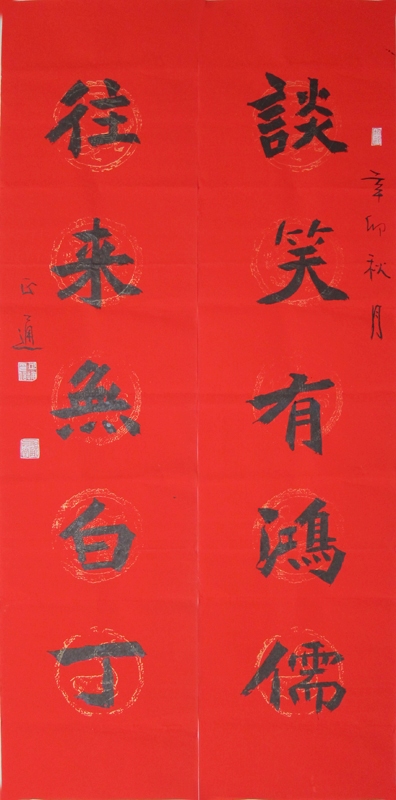 談笑有鴻儒
辛卯秋月
往来無白丁
正通